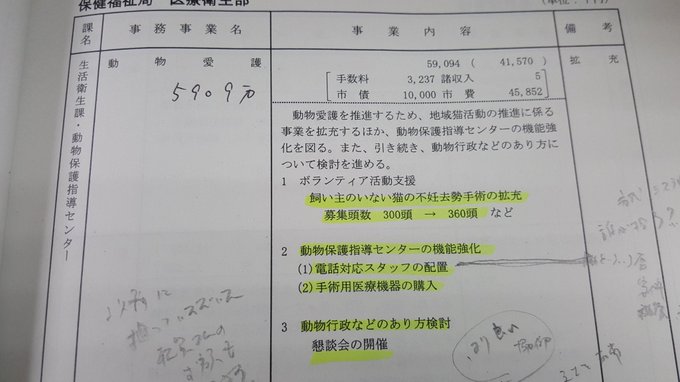 保健福祉局 医療衛生部
課名
事務事業名
事業内容
備考
生活衛生課・動物保護指導センター
動物愛護
5909万
59,094 ( 41,570)
手数料 3,237 諸収入 5
市債 10,000 市費 45,852
拡充
動物愛護を推進するため、地域猫活動の推進に係る
事業を拡充するほか、動物保護指導センターの機能強
化を図る。また、引き続き、動物行政などのあり方に
ついて検討を進める。
1 ボランティア活動支援
飼い主のいない猫の不妊去勢手術の拡充
募集頭数 300頭 → 360頭 など
2 動物保護指導センターの機能強化
(1)電話対応スタッフの配置
(2)手術用医療機器の購入
3 動物行政などのあり方検討
懇談会の開催